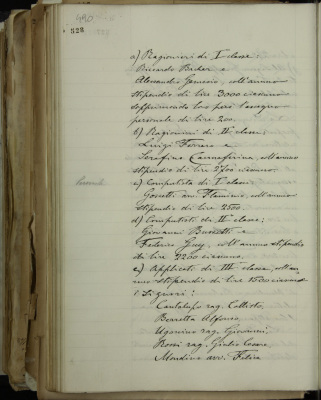 490
328
a) Ragionieri di I classe:
Riccardo Bacher e
Alessandro Genesio, coll'annuo
stipendio di lire 3000 ciascuno
sopprimendo loro però l'assegno
personale di lire 200.
b) Ragionieri di IIa classe;
Luigi Ferrero e
Serafino Cannaferina, coll'annuo
stipendio di lire 2700 ciascuno.
c) Computista di I classe:
avv. Flaminio, coll'annuo
stipendio di lire 2500
d) Computisti di IIa classe;
Giovanni e
Federico coll'annuo stipendio
di lire 2200 ciascuno.
e) Applicati di IIIa classe, coll'an
nuo stipendio di lire 1500 ciascuno
i Signori:
Cantalupo rag. Callisto,
Berretta Alfonso,
Ugonino rag. Giovanni,
Rossi rag. Giulio Cesare,
Mondino avv. Felice